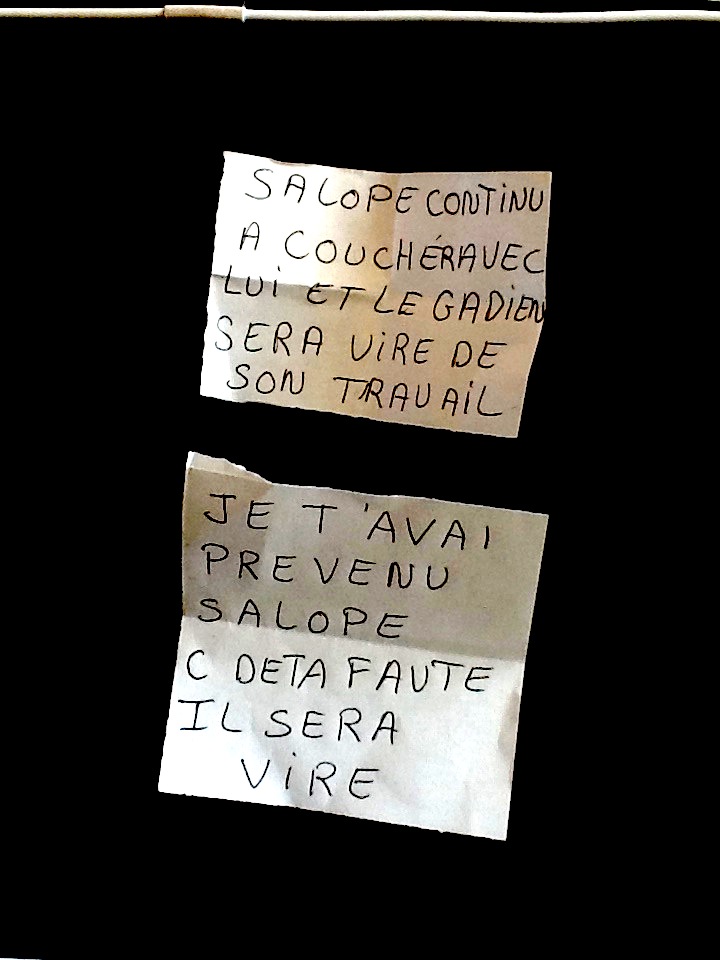 SALOPE CONTINU
A COUCHÉR AVEC
LUI ET LE GADIEN
SERA VIRE DE
SON TRAVAIL
JE T'AVAI
PREVENU
SALOPE
C DE TA FAUTE
IL SERA
VIRE